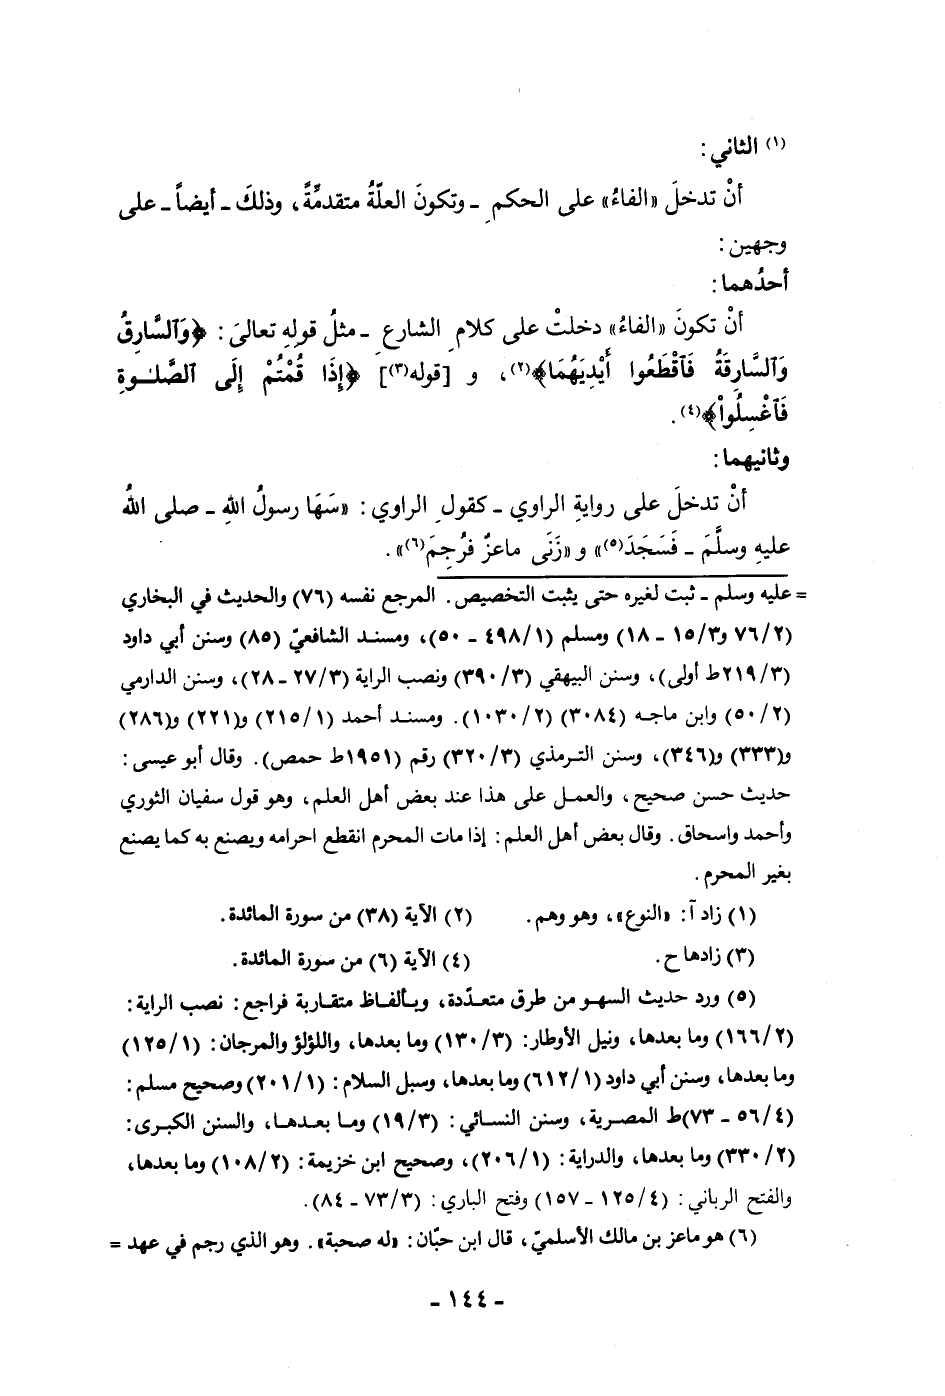 (١) الثاني :
أنْ تدخلَ «الفاءُ» على الحكمِ ـ وتكونَ العلّةُ متقدمِّةً، وذلكَ ـ أيضاً ـ على
وجهين :
أحدُهما :
أنْ تكونَ «الفاءُ» دخلتْ على كلامِ الشارعِ ـ مثلُ قولِهِ تعالىَ : ﴿وَٱلسَّارِقُ
وَٱلسَّارِقَةُ فَٱقْطَعُوا أَيْدِيَهُمَا﴾(٢)، و [قوله(٣)] ﴿إِذَا قُمْتُمْ إِلَى ٱلصَّلَـٰوةِ
فَٱغْسِلُواْ﴾(٤) .
وثانيهما :
أنْ تدخلَ على روايةِ الراوي ـ كقولِ الراوي : «سَهَا رسولُ اللهِ ـ صلى اللهُ
عليهِ وسلَّمَ ـ فَسَجَدَ(٥)» و «زَنَى ماعزٌ فرُجِمَ(٦)» .
= عليه وسلم ـ ثبت لغيره حتى يثبت التخصيص . المرجع نفسه (٧٦) والحديث في البخاري
(٧٦/٢ و١٥/٣ ـ ١٨) ومسلم (٤٩٨/١ ـ ٥٠)، ومسند الشافعيّ (٨٥) وسنن أبي داود
(٢١٩/٣ط أولى)، وسنن البيهقي (٣٩٠/٣) ونصب الراية (٢٧/٣ ـ ٢٨)، وسنن الدارمي
(٥٠/٢) وابن ماجـه (٣٠٨٤) (١٠٣٠/٢). ومسنـد أحمد (٢١٥/١) و(٢٢١) و(٢٨٦)
و(٣٣٣) و(٣٤٦)، وسنن التـرمذي (٣٢٠/٣) رقم (١٩٥١ط حمص). وقال أبو عيسى :
حديث حسن صحيح ، والعمـل على هذا عند بعض أهل العلم، وهو قول سفيان الثوري
وأحمد واسحاق . وقال بعض أهل العلم : إذا مات المحرم انقطع احرامه ويصنع به كما يصنع
بغير المحرم .
(١) زاد آ : «النوع»، وهو وهم . (٢) الآية (٣٨) من سورة المائدة .
(٣) زادها ح . (٤) الآية (٦) من سورة المائدة .
(٥) ورد حديث السهـو من طرق متعـدّدة، وبـألفـاظ متقـاربة فراجع : نصب الراية :
(١٦٦/٢) وما بعدها، ونيل الأوطار : (١٣٠/٣) وما بعدها، واللؤلؤ والمرجان : (١٢٥/١)
وما بعدها، وسنن أبي داود (٦١٢/١) وما بعدها، وسبل السلام : (٢٠١/١) وصحيح مسلم :
(٥٦/٤ ـ ٧٣)ط المصـرية، وسنن النسـائي : (١٩/٣) ومـا بعـدهـا، والسنن الكبرى :
(٣٣٠/٢) وما بعدها، والدراية : (٢٠٦/١)، وصحيح ابن خزيمة : (١٠٨/٢) وما بعدها،
والفتح الرباني : (١٢٥/٤ ـ ١٥٧) وفتح الباري : (٧٣/٣ ـ ٨٤).
(٦) هو ماعز بن مالك الأسلميّ ، قال ابن حبّان : «له صحبة» . وهو الذي رجم في عهد =
ـ ١٤٤ ـ